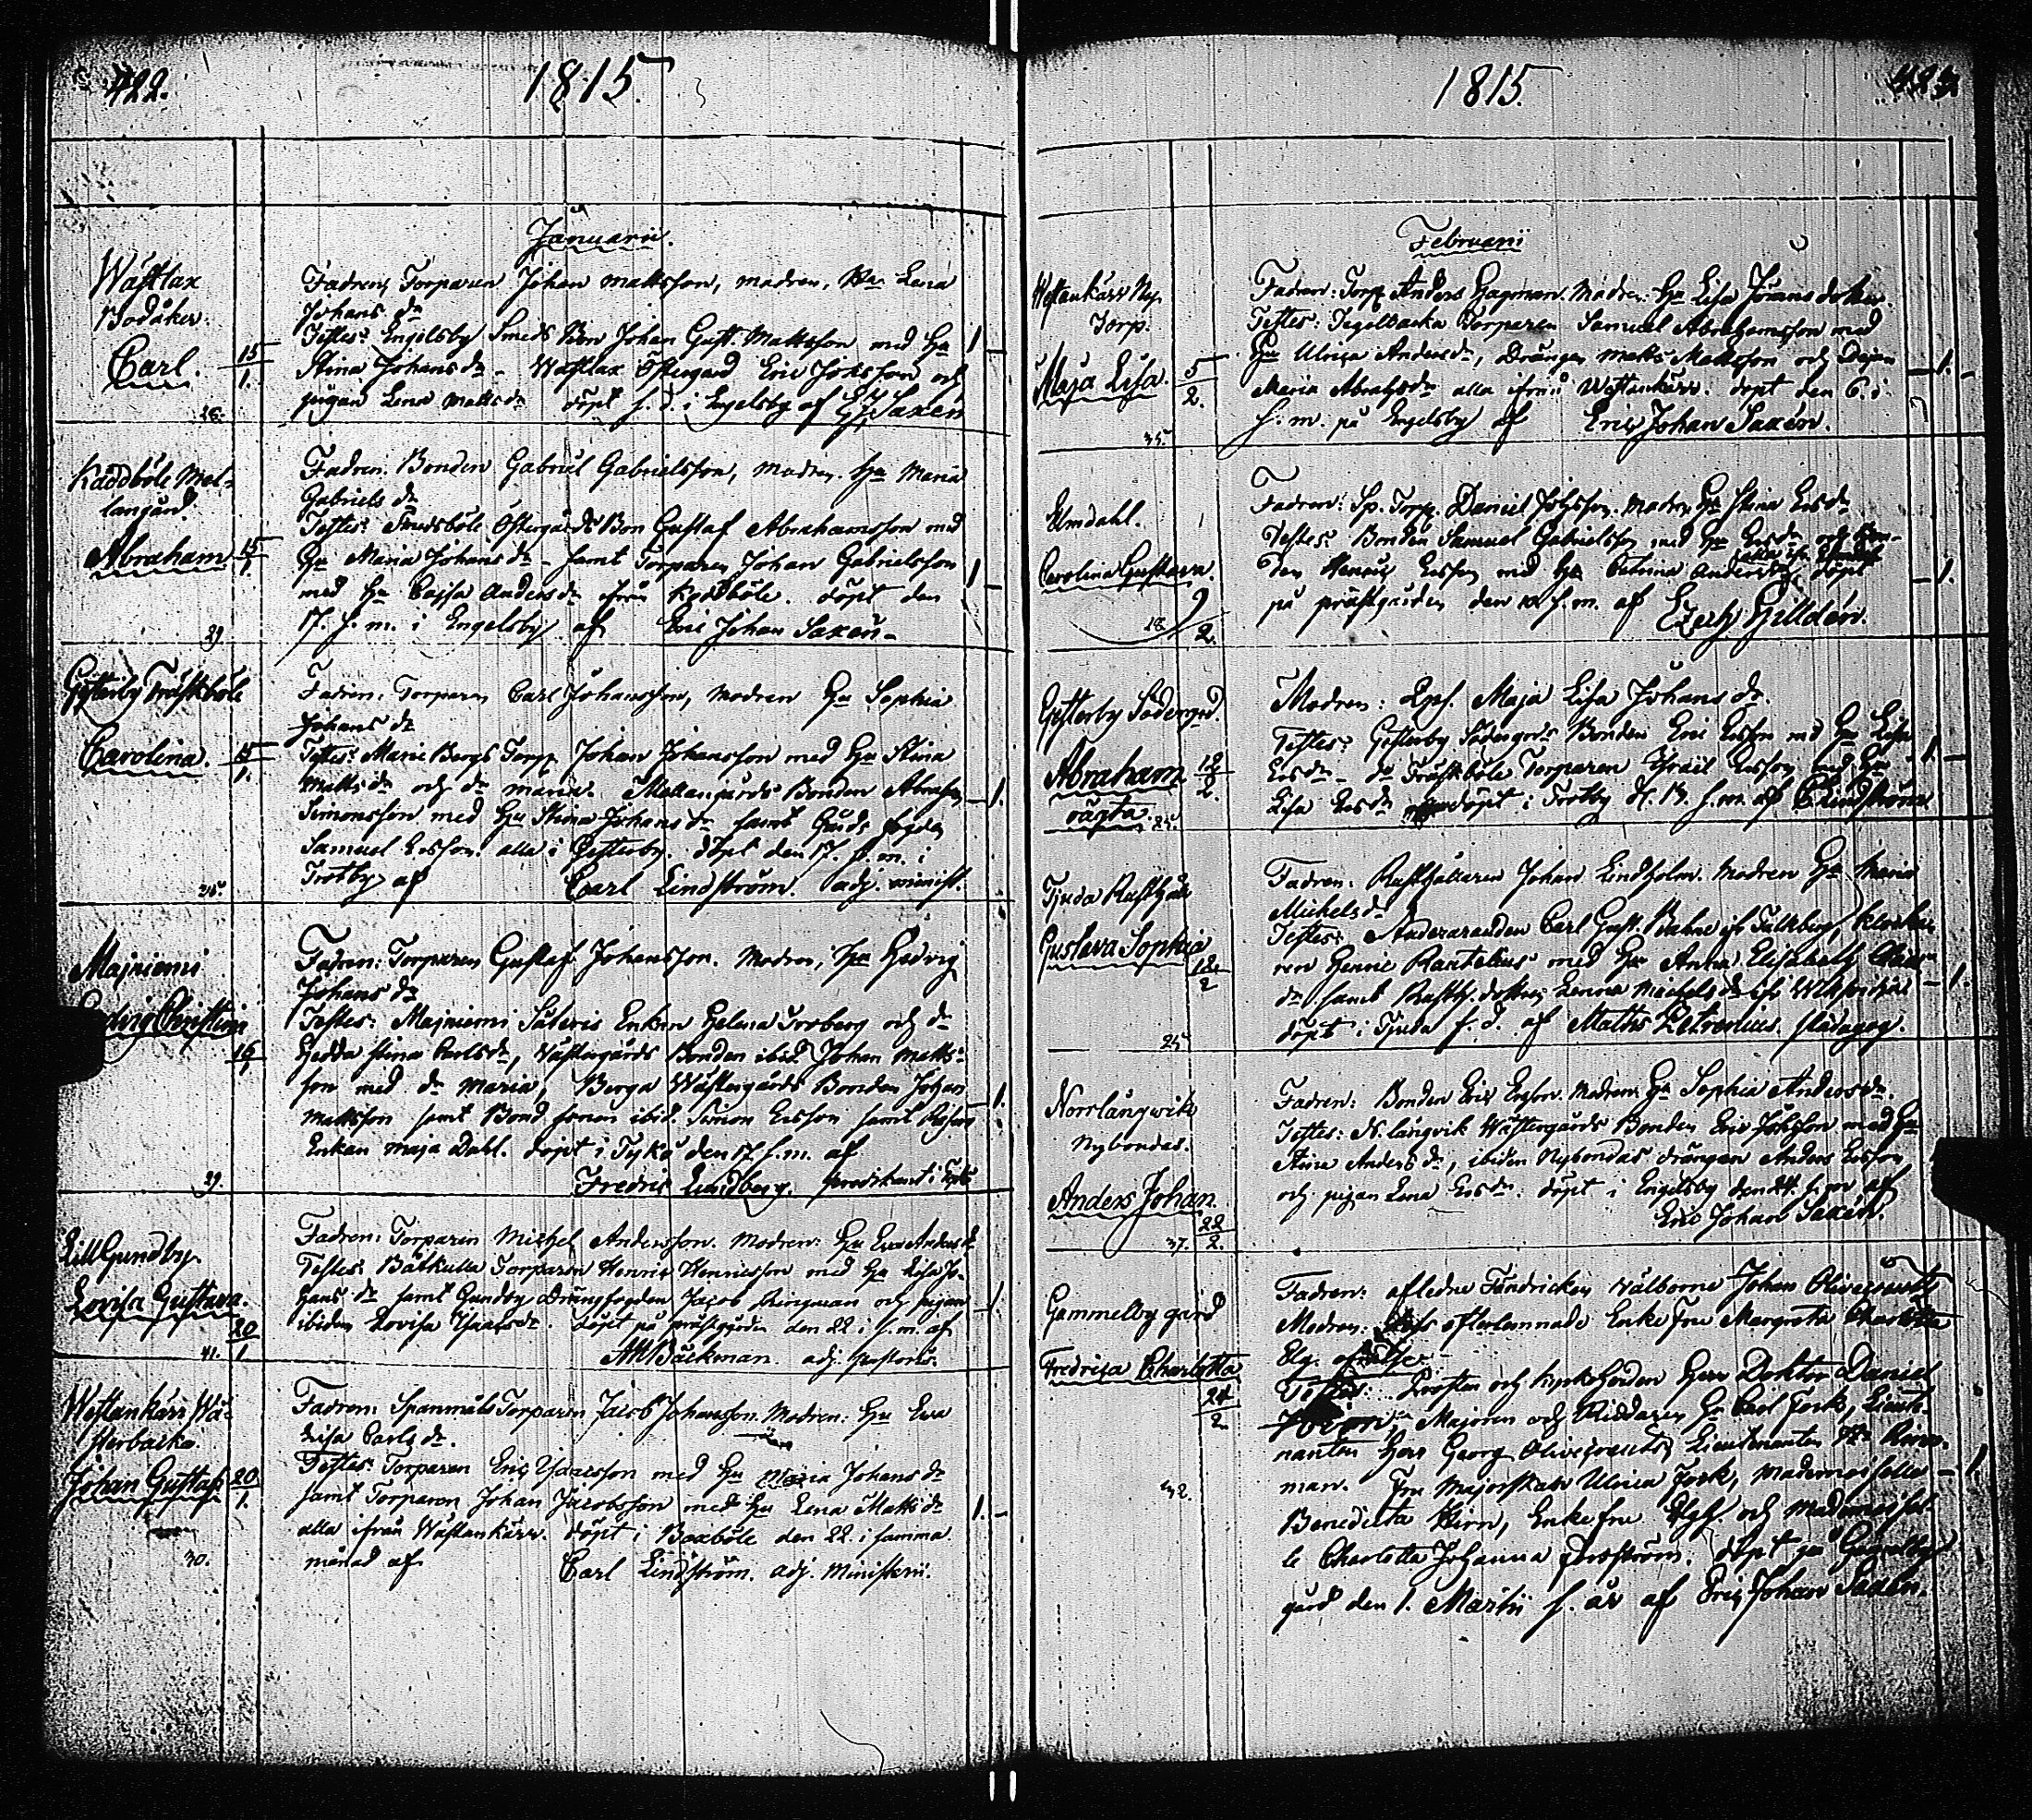 422.
1815.
Januarii.
Wästlax
Bodåker.
Carl. 15/1.
28.
Fadren Torparen Johan Mattsson, modren, Hu Lena
Johans dr
Testes: Engelsby Smeds Bon Johan Gust. Mattsson med Hu
Stina Johans dr - Wästlax Östergård Eric Johsson och
pigan Lena Matts dr döpt s. d. i Engelsby af E J Saxen
1
Kaddböle Mel-
langård.
Abraham 15/1.
29
Fadren Bonden Gabriel Gabrielsson, Modren. Hu Maria
Gabriels dr
Testes: Östergårds Bon Gustaf Abrahamsson med
Hu Maria Johans dr - samt Torparen Johan Gabrielsson
med Hu Cajsa Anders dr ifrån Kaddböle. döpt den
17. s. m. i Engelsby af Eric Johan Saxen -
1
Gesterby Träskböle
Carolina. 15/1.
Fadren: Torparen Carl Johansson, Modren Hu Sophia
Johans dr
Testes: Marie Bergs Torp. Johan Johansson med Hu Stina
Matts dr och dr Maria. Mellangårds Bonden Abrah.
Simonsson med Hu Stina Johans dr samt Gårds fogden
Samuel Ersson. alla i Gesterby. döpt den 17. s. m. i
Trotby af Carl Lindström. adj. minist.
1.
Majniemi
Hedvig Christina
16/1
29
Fadren: Torparen Gustaf Johansson. Modren, Hu Hedvig
Johans dr
Testes: Majniemi Säteris Enkan Helena Broberg och dr
Hedda Stina Carls dr, Wästergårds Bonden ibid Johan Matts-
son med dr Maria, Berga Wästergårds Bonden Johan
Mattsson samt Bond sonen ibid. Simon Ersson samt
Enkan Maja Dahl. döpt i Tykö den 17 s. m. af
Fredric Lundberg. predikant i Tykö
1.
Lill Gundby
Lovisa Gustava.
20/1.
41.
Fadren: Torparen Michel Andersson. Modren: Hu Eva Anders dr
Testes: Båtkulla Torparen Henric Henricsson med Hu Lisa Jo-
hans dr samt Gundby Drängfogden Jacob Ringman och pigan
ibidem Lovisa Isaacs dr. döpt på prästgården den 22 i s. m. af
Bäckman. adj. pastoris.
1.
Westankärr Wä-
sterbacka.
Johan Gustaf 20/1.
30.
Fadren: Spanmåls Torparen Jacob Johansson. Modren: Hu Eva
Lisa Carls dr.
Testes: Torparen Eric Isacsson med Hu Maria Johans dr
samt Torparen Johan Jacobsson med Hu Lena Matts dr
alla ifrån Wästankärr. döpt i Boxböle den 22. i samma
månad af Carl Lindström. adj. Ministerii.
1.
1815.
Februarii
Westankärr Ny
Torp.
Maja Lisa. 5/2.
35.
Fadren: Torp. Anders Hagman. Modren: Hu Lisa Jöransdotter
Testes: Tegelbacka Torparen Samuel Abrahamsson med
Hu Ulrica Anders dr, Drängen Matts Mattsson och Pigan
Maria Abrahs dr alla ifrån Westankärr. döpt den 6. i
s. m. på Engelsby af Eric Johan Saxén.
1.
Elmdahl.
Carolina Gustava.
9/2.
18.
Fadren: Sp. Torp. Daniel Johsson. Modren Hu Stina Ers dr
Testes: Bonden Samuel Gabrielsson med Hu Ers dr och Bon-
den Henric Ersson med Hu Catrina Anders dr, döpt
på prästgården den 10 s. m. af Gilldén.
1.
Gesterby Södergrd.
Abraham 12/2.
oägta.
Modren: Lps. Maja Lisa Johans dr
Testes: Gesterby Södergrds Bonden Eric Ersson med Hu Lisa
Ers dr - dr Träskböle Torparen Israel Ersson med Hu
Lisa Ers dr döpt i Trotby d. 13. s. m. af C Lindström
1.
Tjuda Rusthåll
Gustava Sophia
18/2
25
Fadren: Rusthållaren Johan Lindholm. Modren Hu Maria
Michels dr
Testes: Studeranden Carl Gust.
Henric Rantelius med Hu Anna Elisabeth
dr samt Rusth. dottren Lenna Michels dr
döpt i Tjuda s. d. af Maths Petronius. Pädagog.
1.
Norrlångwik
Nybondas.
Anders Johan.
22/2.
37.
Fadren: Bonden Eric Ersson. Modren Hu Sophia Anders dr.
Testes: N. långvik Wästergårds Bonden Eric Johsson med Hu
Stina Anders dr, ibidem Nybondas drängen Anders Ersson
och pigan Lena Ers dr. döpt i Engelsby den 24. s. m af
Eric Johan Saxén.
Gammelby gård
Fredrica Charlotta
24/2
32.
Fadren: afledne Fändricken Wälborne Johan Olivecreutz
Modren: dess efterlemnade Enkefru Margreta Charlotta
Testes: Prosten och Kyrkoherden Herr Doktor Daniel
Hirn, Majoren och Riddaren Hr Carl Fock, Lieute-
nanten Herr Georg Olivecreutz, Lieutenanten Hr
man. Fru Majorskan Ulrica Fock, Mademoiselle
Benedicta Hirn, Enkefru och Mademoisel-
le Charlotta Johanna döpt på Gammelby
gård den 1. Martii s. år af Eric Johan Saxén.
1.